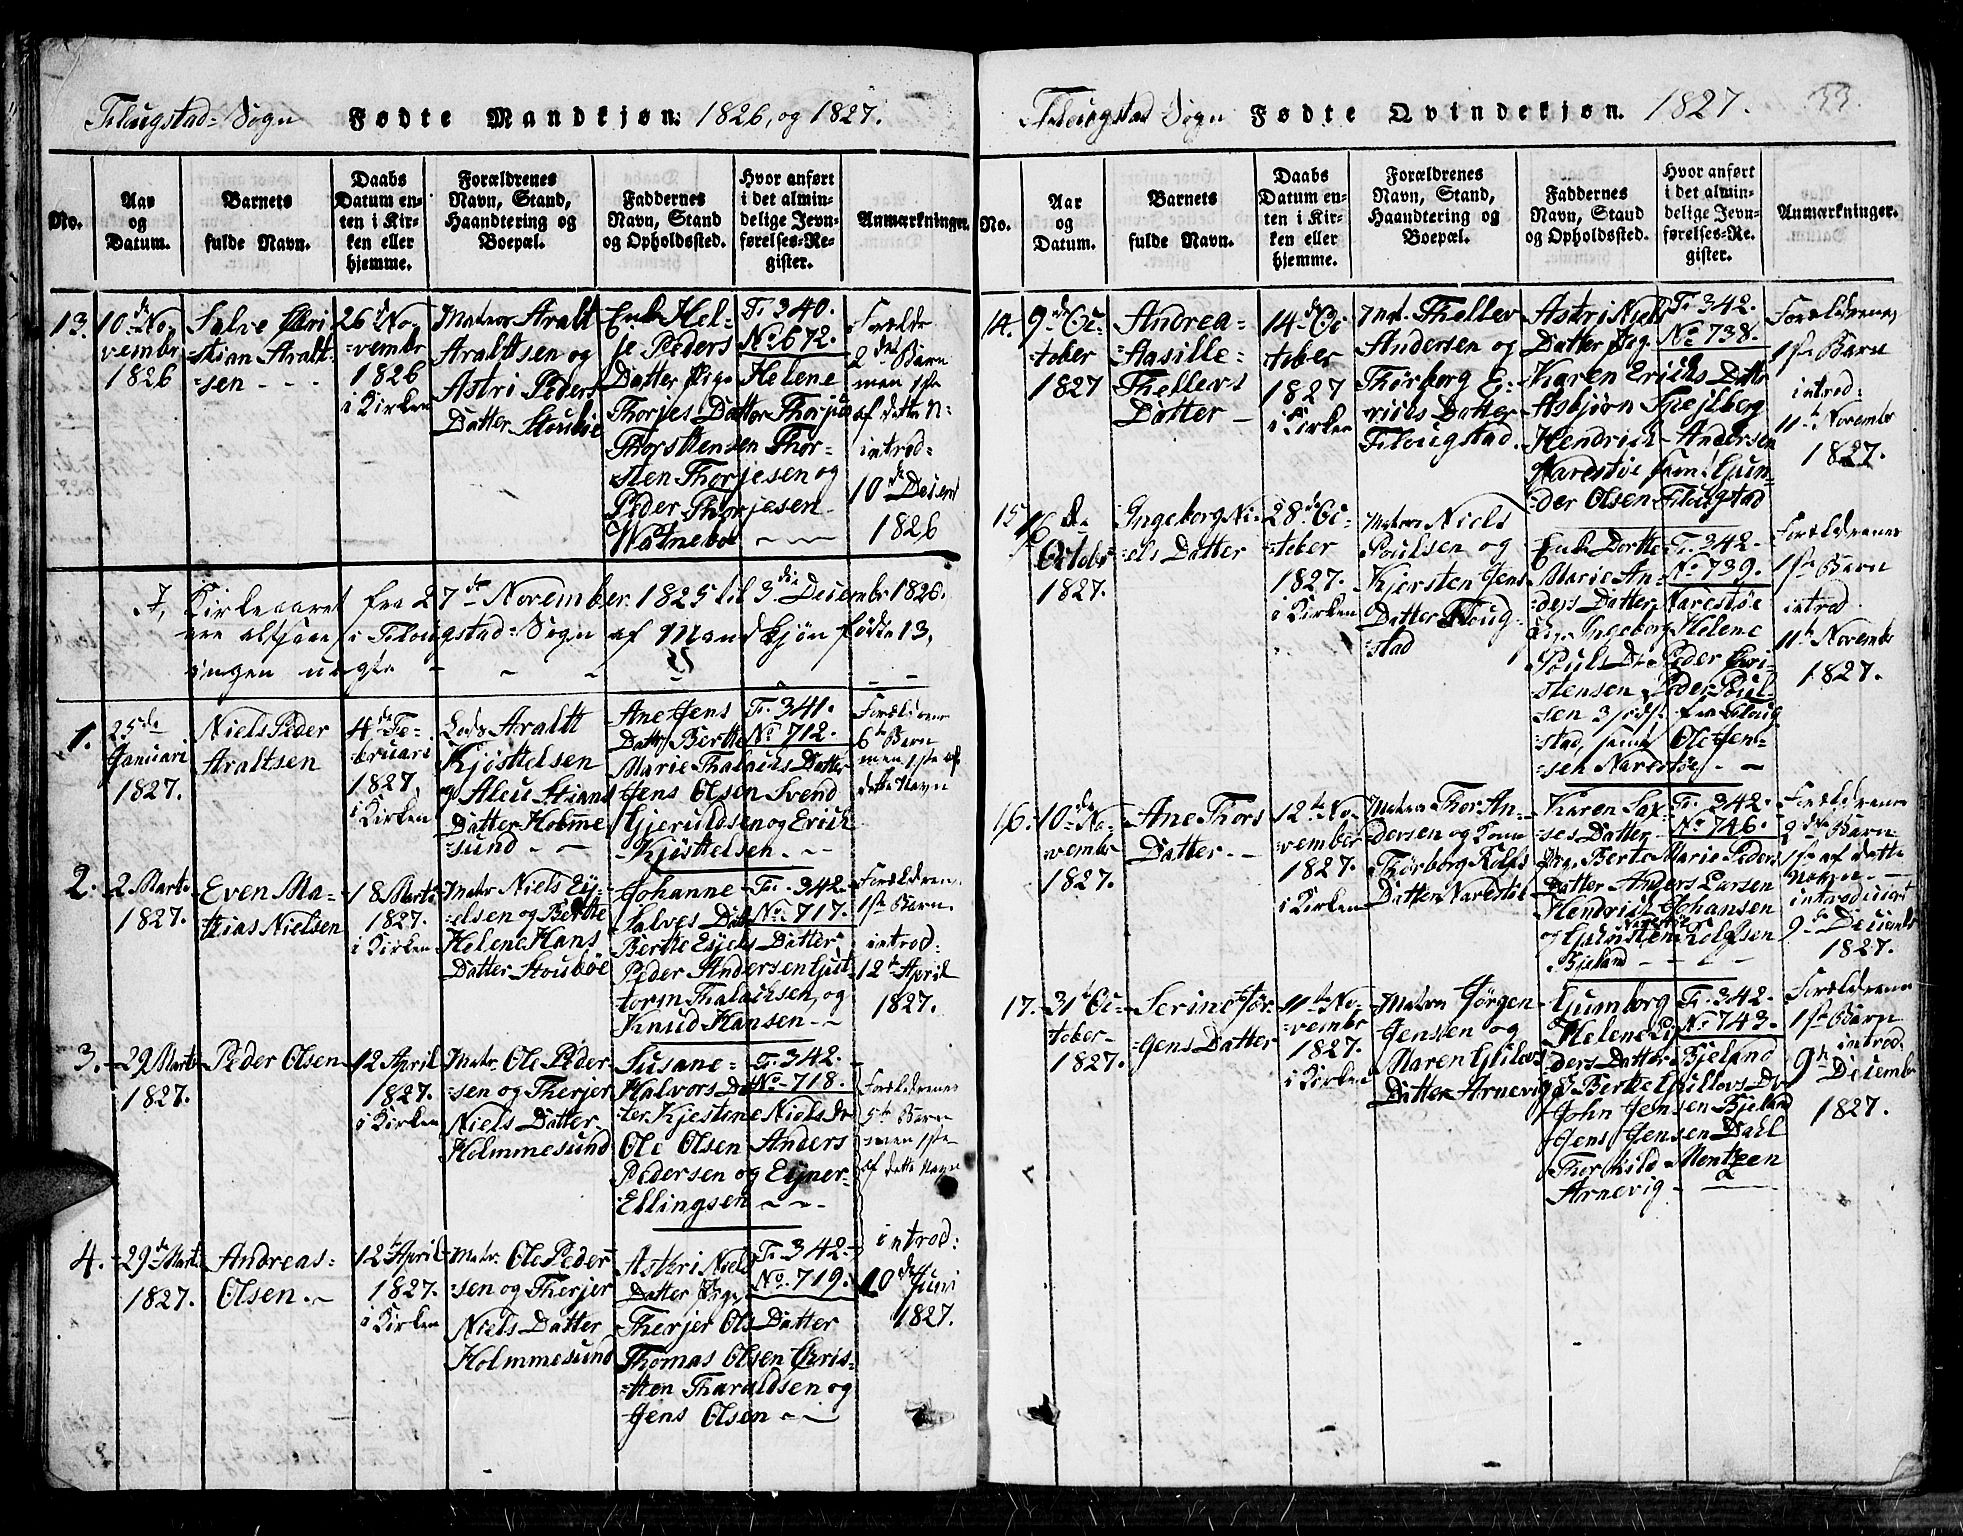 Flougstad-Sogn Fødte Mandkjøn: 1826, og 1827.
No.
Aar
og
Datum.
Barnets
fulde Navn.
Daabs
Datum en-
ten i Kir-
ken eller
hjemme.
Forældrenes
Navn, Stand,
Haandtering og
Boepæl.
Faddernes
Navn, Stand
og Opholdssted.
Hvor anført
i det almin-
delige Jevn-
førelses-Re-
gister.
Anmærkninger.
13.
10de No-
vembr
1826
Salve Chri
stian Aralt-
sen - - -
26d No-
vembr
1826
i Kirken
Matros Aralt
Araltsen og
Astri Peders
Datter Stoubøe
Enk Hel-
je Peders
Datter Pige Helene
Thorjes Datter Thorjus
Thorstensen Thor-
sten Thorjesen og
Peder Thorjesen
Watneboe
F. 340.
No 672.
Forælde
2det Barn
men 1ste
af dette N-
introd=
10de Decem
1826
I Kirkeaaret fra 27de November 1825 til 3die December 1826.
ere altsaa i Flougstad-Sogn af Mandkjøn fødte 13,
ingen uægte - - -
1.
25de
Januari
1827.
Niels Peder
Araltsen
4de Fe-
bruari
1827.
i Kirken
Lods Aralt
Kjøsttelsen
og Aleu Stians
Datter Holme
sund - -
Ane Jens
Datter Berthe
Marie Thalachs Datter
Jens Olsen Svend
Gjeruldsen og Erich
Kjøsttelsen
F. 341.
No. 712.
Forældrene
6te Barn
men 1ste af
dette Navn
2.
2 Marti
1827.
Even Ma-
ttias Nielsen
18 Marti
1827.
i Kirken
Matr Niels Ey-
elsen og Berthe
Helene Hans
Datter Stoubøe
Johanne
Salves Dat
Berthe Eyels Datter
Peder Andersen Gut
torm Thalachsen, og
Knud Hansen
F. 342.
No. 717.
Forældren
1ste Barn
introd=
12te April
1827.
3.
29 Marti
1827.
Peder Olsen
12 April
1827.
i Kirken
Matr. Ole Peder
sen og Therjer
Niels Datter
Holmmesund
Susane
Halvors Dat
ter. Kjestene Niels Dr
Ole Olsen Anders
Pedersen og Eyner
Ellingsen
F. 342.
No. 718.
Forældrenes
5te Barn
men 1ste
af dette Navn
4.
29d Marti
1827.
Andreas-
Olsen.
12te April
1827.
i Kirken
Matr. Ole Peder
sen og Therjer
Niels Datter
Holmmesund
Astri Niels
Datter Pige,
Therjer Ols Datter
Thomas Olsen Chris-
tten Tharaldsen og
Jens Olsen
F. 342.
No. 719.
introd:
10de Juni
1827.
Flougstad Sogn Fødte Qvindekjøn. 1827. 33.
No.
Aar
og
Datum.
Barnets
fulde Navn.
Daabs
Datum en-
ten i Kir-
ken eller
hjemme.
Forældrenes
Navn, Stand,
Haandtering og
Boepæl.
Faddernes
Navn, Stand
og Opholdssted.
Hvor anført
i det almin-
delige Jevn-
førelses-Re-
gister.
Anmærkninger.
14.
9d Oc-
tober
1827
Andrea-
Aasille-
Thellevs
Datter
14d Oc
tober
1827
i Kirken
Thellev
Andersen og
Thørborg E-
richs Datter
Flougstad.
Astri Niels
Datter
Karen Erichs Datto
Asbjøn Snejlberg
Hendrich Andersen
Narestøe saml Gun-
der Olsen Flougstad
F. 342.
No 738.
Forældrenes
1ste Barn
introd:
11te Novembr
1827.
15
16 de
October
1827.
Ingeborg Ni-
els Datter
28d Oc-
tober
1827.
i Kirken
Matros Niels
Poulsen og
Kjersten Jens
Datter Floug-
stad
Enk Dorthe
Marie An-
ders Datter, Narestøe
Pig. Ingeborg Helene
Pouls Dr Peder Chri-
stensen, Peder Poul-
sen fra Floug
stad, saml Ole Jen-
sen Narestøe
F. 342.
No 739.
Forældrenes
1ste Barn
introd
11te Novembr
1827.
16.
10de No-
vembr
1827.
Ane Thors
Datter.
12te No-
vember
1827.
i Kirken
Matros Thor An-
dersen og Kone
Thørborg Rolfs
Datter Narestøe
Karen Sax-
ses Datter
Pig. Berte Marie Peders
Datter Anders Larsen
Hendrich Johansen
Narestøe
og Gunsten Rolfsen
Bjeland
F. 342.
No 746.
Forældrenes
2det Barn
1ste af dette
Navn.
introduceret
9de Decembr
1827.
17.
31te Oc-
tober
1827.
Serine Jør-
gens Datter
11te No-
vembr
1827.
i Kirken
Matros Jørgen
Jensen og
Maren Gjulevs
Datter Arnevig
Gumborg
Helene Pe
ders Datter Bjeland
Berthe Gjullovs Dr
John Jensen Bjeland
Jens Jensen Dael
Thorkild Montzen
Arnevig
F. 342.
No 743.
Forældrenes
1ste Barn
introd
9de
Decembr
1827.